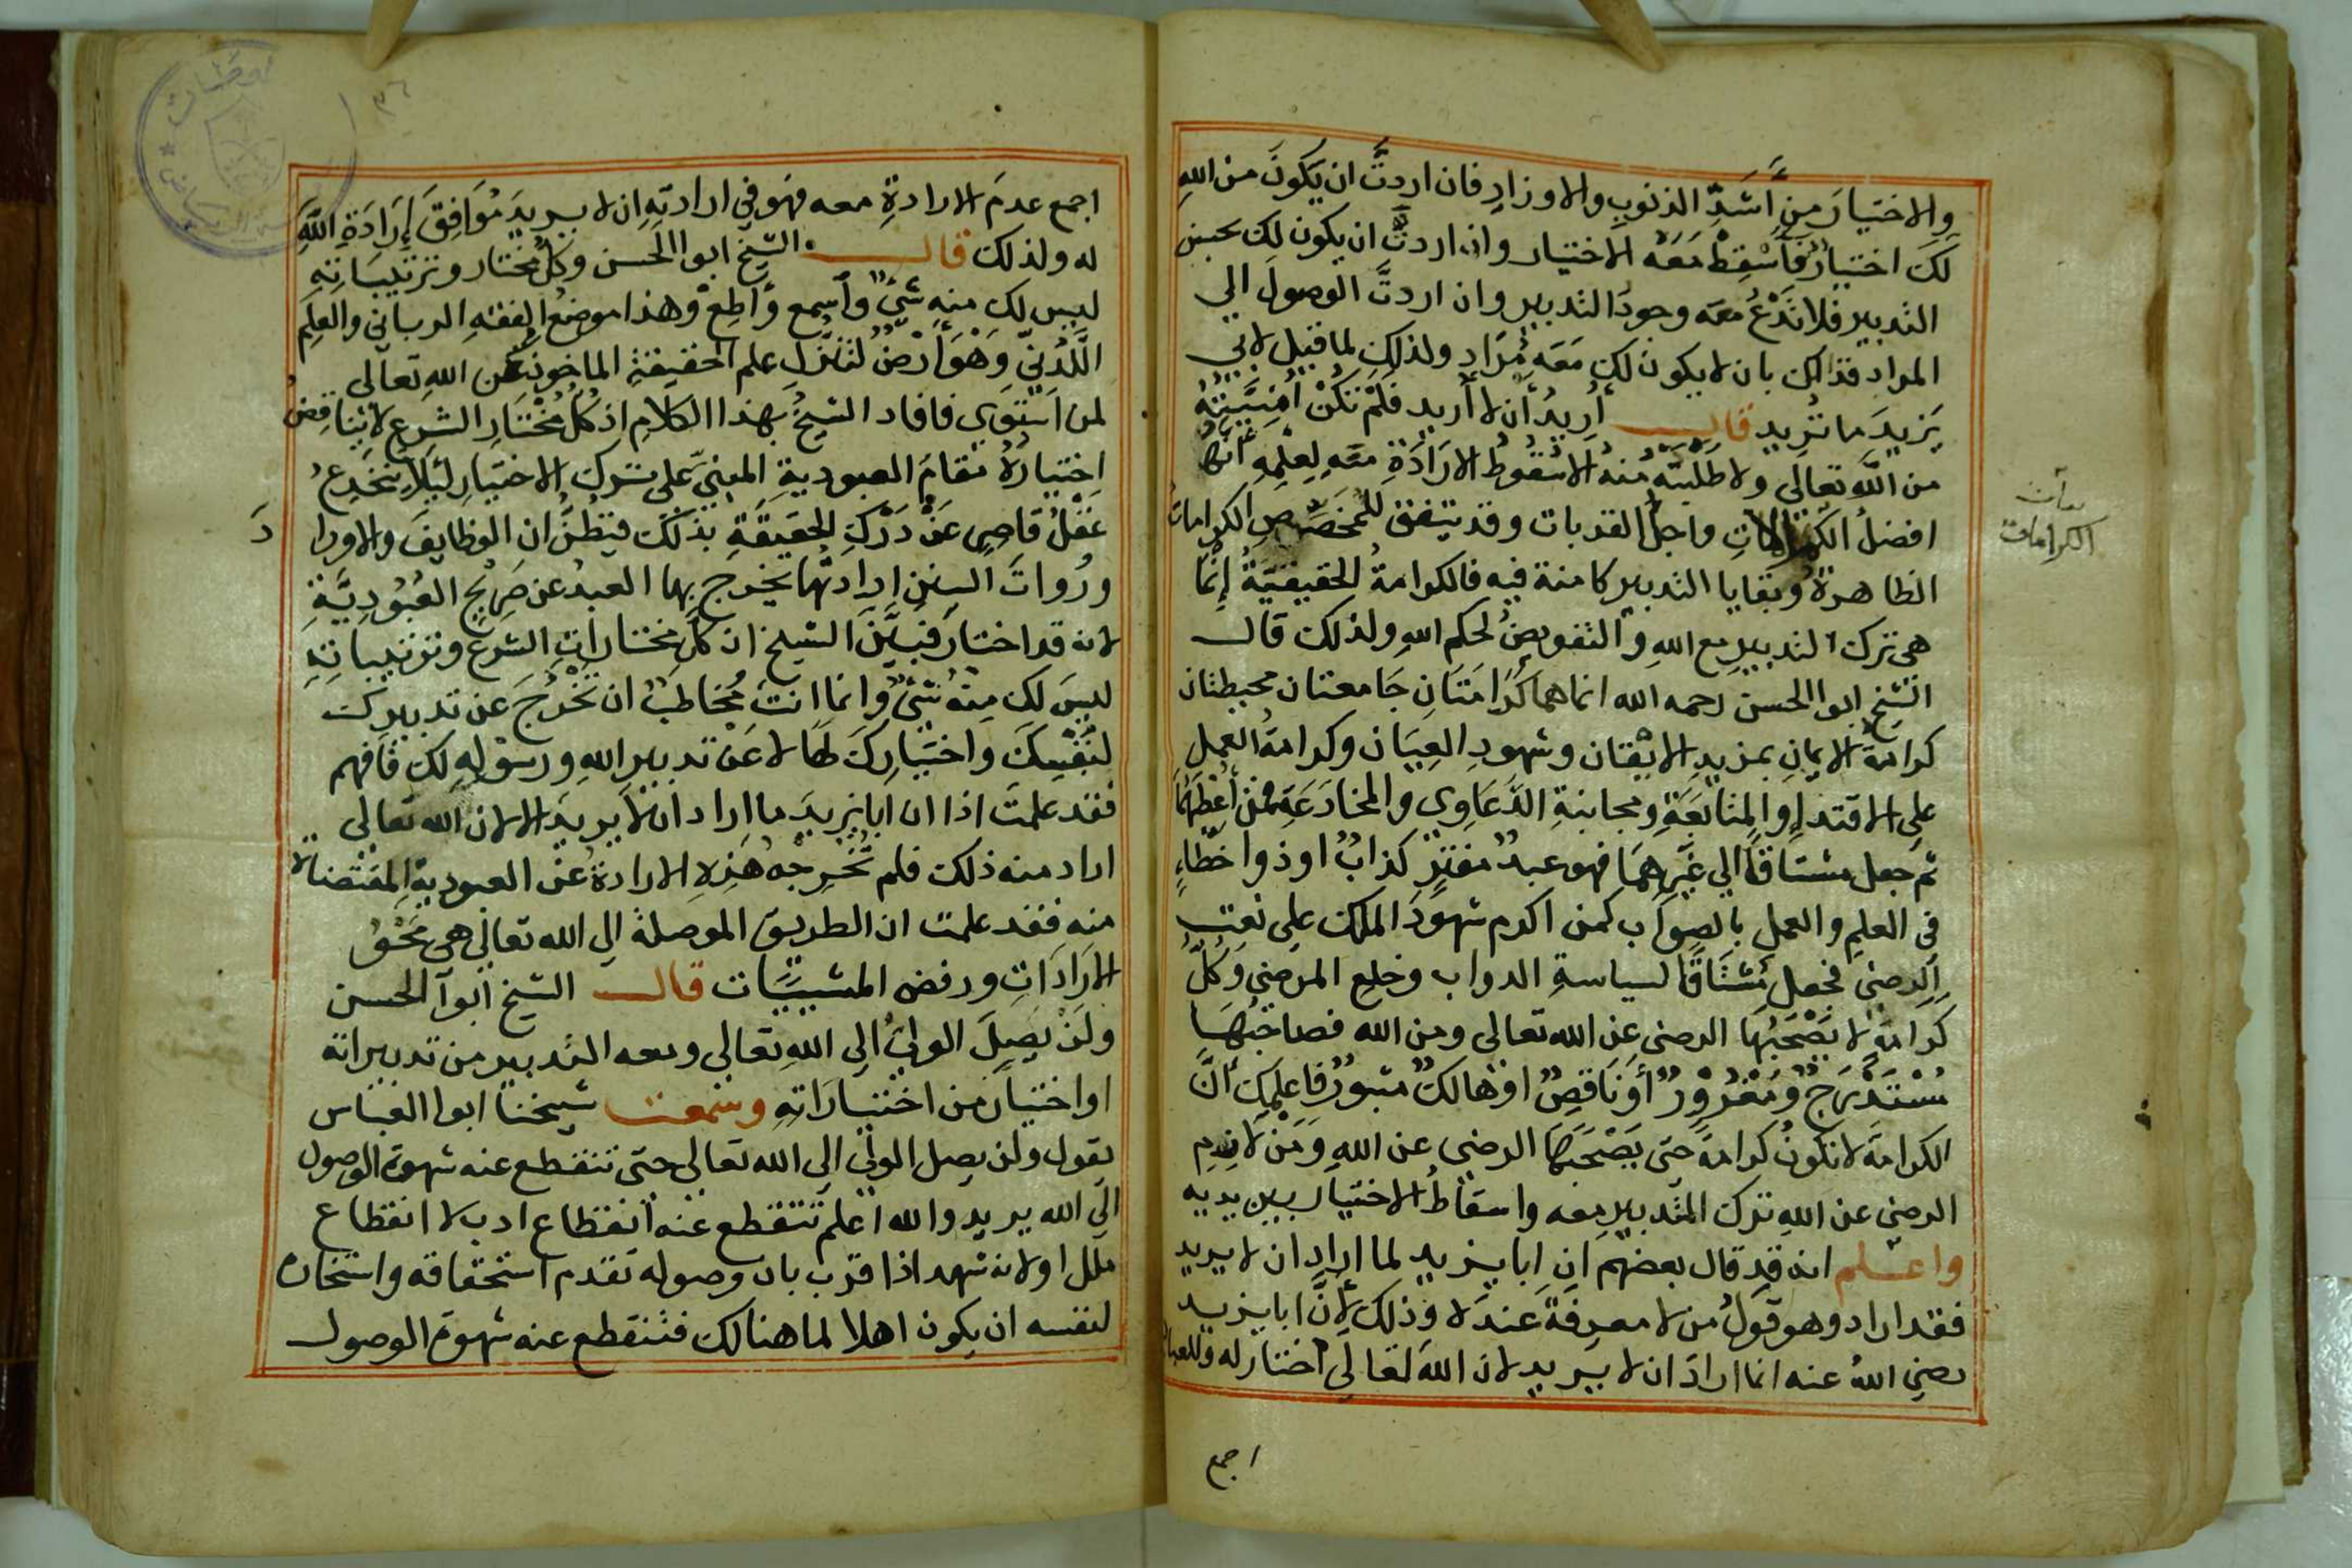 والاختيار من أشد الذنوب والاوزار فان اردت ان يكون من الله
لك اختيار فأسقط معه الاختيار وان اردت ان يكون لك حسن
التدبير فلا تدع معه وجود التدبير وان اردت الوصول الي
المراد فذالك بان لا يكون لك معه مراد ولذلك لما قيل لابي
يزيد ما تريد قال أريد أن لا أريد فلم تكن أمنيته
من الله تعالي ولا طلبته منه الا سقوط الارادة معه لعلمه انها
افضل الكرامات واجل القربات وقد يتفق للمخصص الكرامات
الظاهرة وبقايا التدبير كامنة فيه فالكرامة الحقيقية إنما
هي ترك التدبير مع الله والتفويض لحكم الله ولذلك قال
الشيخ ابوا الحسن رحمه الله انما هما كرامتان جامعتان محيطتان
كرامة الايمان بمزيد الايقان وشهود العيان وكرامة العمل
علي الاقتداء والمتابعة ومجانبة الدعاوي والمخادعة فمن أعطيهما
ثم جعل مشتاقا الي غيرهما فهو عبد مفتر كذاب او ذوا خطاء
في العلم والعمل بالصواب كمن اكرم شهود الملك علي نعت
الرضي فجعل يشتاق لسياسة الدواب وخلع المرضي وكل
كرامة لا يصحبها الرضي عن الله تعالي ومن الله فصاحبها
مستدرج ومغرور أو ناقص او هالك مثبور فاعلم أن
الكرامة لا تكون كرامة حتي يصحبها الرضي عن الله ومن لازم
الرضي عن الله ترك التدبير معه واسقاط الاختيار بين يديه
واعلم انه قد قال بعضهم ان ابا يزيد لما اراد ان لا يريد
فقد اراد وهو قول من لا معرفة عنده وذلك لأن ابا يزيد
رضي الله عنه انما اراد ان لا يريد لان الله تعالي اختار له وللعباد
اجمع
الكرامات
٣٦
اجمع عدم الارادة معه فهو في ارادته ان لا يريد موافق إرادة الله
له ولذلك قال الشيخ ابوا الحسن وكل مختار وترتيباته
ليس لك منه شئ واسمع واطع وهذا موضع الفقه الرباني والعلم
اللدني وهو أرض لتنزل علم الحقيقة الماخوذ عن الله تعالي
لمن استوي فافاد الشيخ بهذا الكلام اذ كل مختار الشرع لا يناقض
اختياره مقام العبودية المبني علي ترك الاختيار ليلا ينخدع
عقل قاصر عن درك الحقيقة بذلك فيظن ان الوظايف والاوراد
وروات السنن ارادتها يخرج بها العبد عن صريح العبودية
لانه قد اختار فبين الشيخ ان كل مختارات الشرع وترتيباته
ليس لك منه شئ وانما انت مخاطب ان تخرج عن تدبيرك
لنفسك واختيارك لها لا عن تدبير الله ورسوله لك فافهم
فقد علمت اذا ان ابا يزيد ما اراد ان لا يريد الا لان الله تعالي
اراد منه ذلك فلم تخرجه هذه الارادة عن العبودية المقتضاة
منه فقد علمت ان الطريق الموصلة الي الله تعالي هي محو
الارادات ورفض المشييات قال الشيخ ابوا الحسن
ولن يصل الولي الي الله تعالي ومعه التدبير من تدبيراته
او اختيار من اختياراته وسمعت شيخنا ابوا العباس
يقول ولن يصل الولي الي الله تعالي حتي تنقطع عنه شهوة الوصول
الي الله يريد والله اعلم تنقطع عنه انقطاع ادب لا انقطاع
ملل او لانه شهد اذا قرب بان وصوله تقدم استحقاقه واستحاره
لنفسه ان يكون اهلا لما هنالك فتنقطع عنه شهوة الوصول